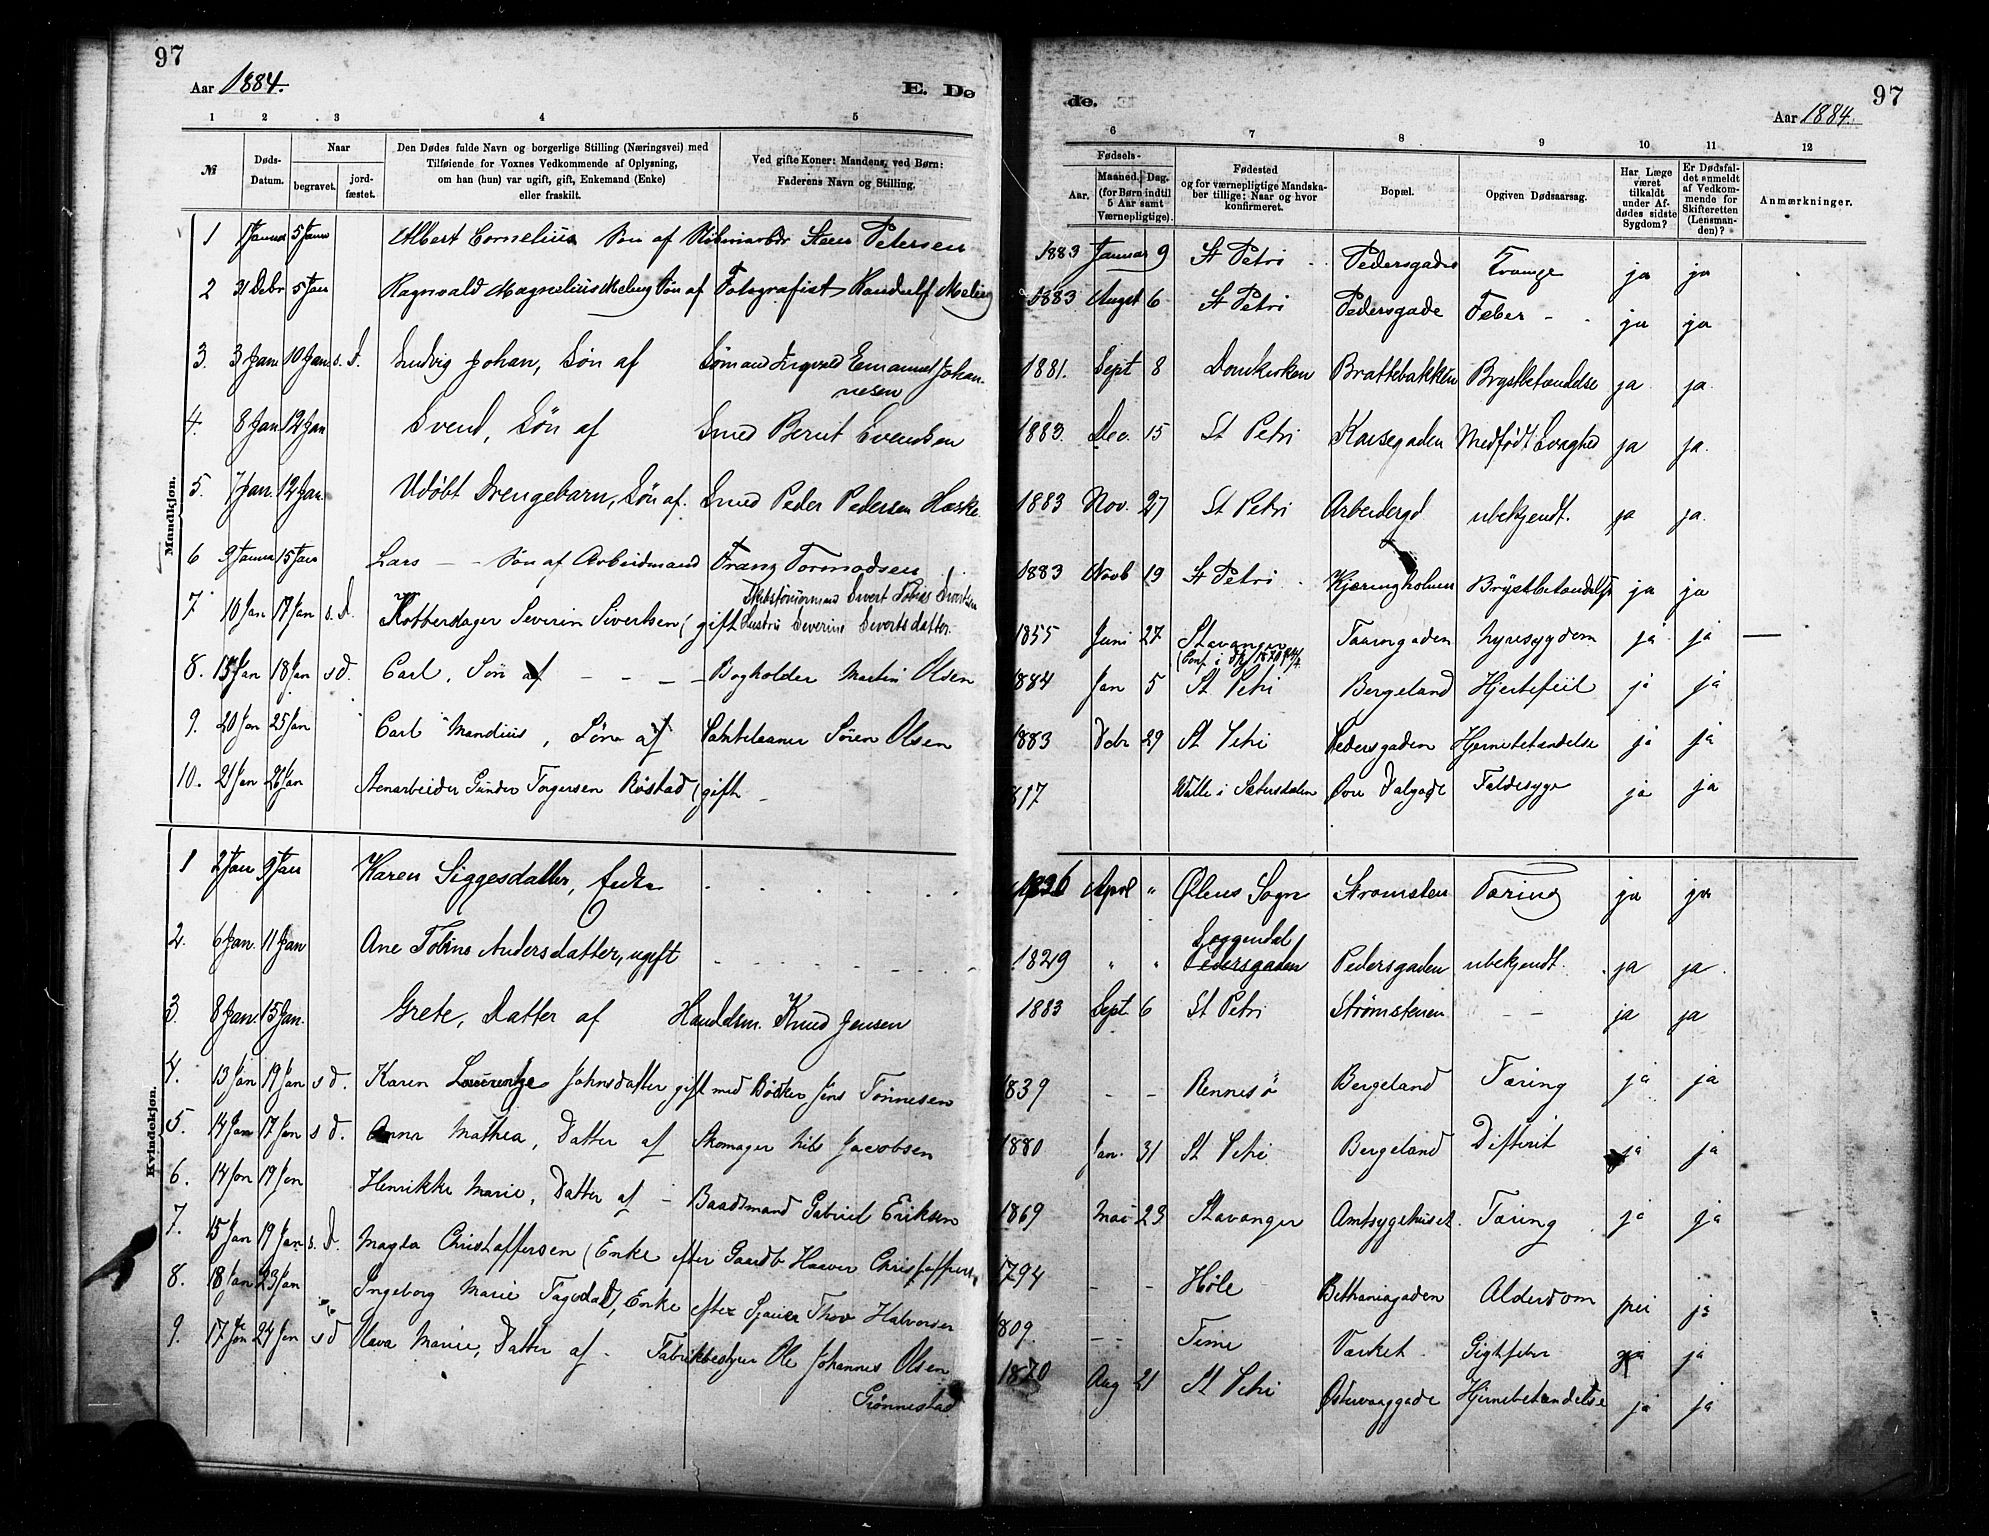 97
Aar 1884.
E. Dø
1 2 3 4 5
№
Døds-Datum.
Naar
begravet.
jordfæstet.
Den Dødes fulde Navn og borgerlige Stilling (Næringsvei) med
Tilføiende for Voxnes Vedkommende af Oplysning,
om han (hun) var ugift, gift, Enkemand (Enke)
eller fraskilt.
Ved gifte Koner: Mandens, ved Børn:
Faderens Navn og Stilling.
Mandkjøn.
1 1 Januar 5 Janr Albert Cornelius Søn af Steen Petersen
2 31 Debr 5 Jan Ragnvald Magnelius Meling Søn af Fotografist Randulf Meling
3. 3 Jan 10 Jan. s. d. Ludvig Johan, Søn af Sømand Ingvald Emanuel Johan-
nesen
4. 8 Jan 12 Jan Svend, Søn af Smed Bernt Svendsen
5. 7 Jan. 12 Jan. Udøbt Drengebarn, Søn af. Smed Peder Pedersen Haske
6 9 Januar 15 Jan Lars – – Søn af Arbeidmand Franz Tormodsen
7 10 Jan 17 Jan s. d. Kobberslager Severin Sivertsen (gift Sivert Tobias Sivertsen
Hustru Severine Sivertsdatter.
8. 15 Jan 18 Jan s d. Carl, Søn af – – – – Bogholder Martin Olsen
9. 20 Jan 25 Jan Carl Mandius, Søn af Søren Olsen
10. 21 Jan 26 Jan Stenarbeider Gunder Torgersen Røstad (gift –
Kvindekjøn.
1 2 Jan 9 Jan Karen Siggesdatter, Enke
2. 6 Jan. 11 Jan Ane Tobine Andersdatter, ugift
3. 8 Jan. 15 Jan. Grete, Datter af Handelsm. Knud Jensen
4. 13 Jan 19 Jan s d. Karen Laurentze Johnsdatter gift med Bødker Jens Tønnesen
5. 14 Jan 17 Jan s d. Anna Mathea, Datter af Skomager Nils Jacobsen
6. 14 Jan 19 Jan Henrikke Marie, Datter af – Baadsmand Gabriel Eriksen
7. 15 Jan 19 Jan s. d. Magla Christoffersen (Enke efter Gaardb Haaver Christoffersen
8. 18 Jan 23 Jan Ingeborg Marie Tagedal, Enke efter Sjauer Thor Halvorsen
9. 17 Jan 24 Jan s d Hava Marie, Datter af – Fabrikbestyrer Ole Johannes Olsen
Grønnestad
de.
97
Aar 1884.
6 7 8 9 10 11 12
Fødsels-
Aar.
Maaned. Dag.
(for Børn indtil
5 Aar samt
Værnepligtige).
Fødested
og for værnepligtige Mandska-
ber tillige: Naar og hvor
konfirmeret.
Bopæl.
Opgiven Dødsaarsag.
Har Læge
været
tilkaldt
under Af-
dødes sidste
Sygdom?
Er Dødsfal-
det anmeldt
af Vedkom-
mende for
Skifteretten
(Lensman-
den)?
Anmærkninger.
1883 Januar 9 St Petri Pedersgaden ja ja
1883 Augst 6 St Petri Pedersgade Feber – – ja ja
1881. Sept 8 Domkirken Brattebakken Brystbetændelse ja ja.
1883. Dec. 15 St Petri Karlsgaden Medfødt Svaghed ja ja.
1883 Nov. 27 St Petri Arbeidergd ubekjendt. ja ja.
1883 Novb 19 St Petri Kjæringholmen Brystbetændelse ja ja
1855 Juni 27 Stavanger Taarngaden Nyresygdom ja ja –
1884 Jan 5 St Petri Bergeland Hjertefeil ja ja
1883 Debr 29 St Petri Pedersgaden Hjernebetændelse ja ja
817 Walle i Sætersdalen Øvre Dalgade Faldesyge ja ja
1836 April " Ølens Sogn Strømsten Tæring ja ja
Soggendal
1829 " " Pedersgaden Pedersgaden ubekjendt. ja ja.
1883 Sept. 6 St Petri Strømstenen – – ja ja
1839 – – Rennesø Bergeland Tæring ja ja
1880 Jan. 31 St Petri Bergeland Difterit ja ja
1869 Mai 23 Stavanger Amtsygehuset. Tæring ja ja
1794 – – Høle Bethaniagaden Alderdom nei ja
809. – – Time Værket. Gigtfeber ja ja
1870 Aug 21 St Petri Østervaaggade Hjernebetændelse ja ja